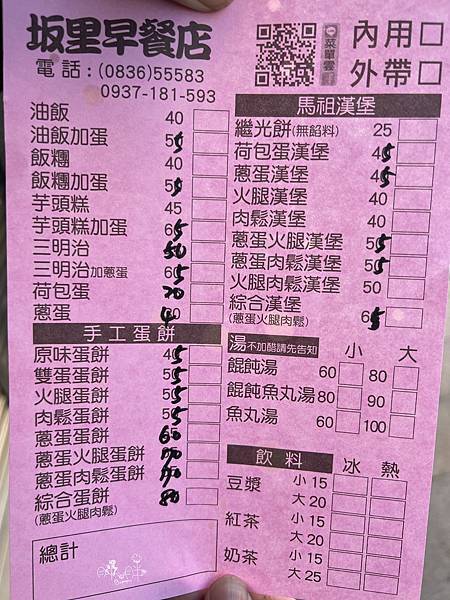 坂里早餐店
電話：(0836)55583
0937-181-593
菜單雲
內用□
外帶□
油飯 40
油飯加蛋 55
飯糰 40
飯糰加蛋 55
芋頭糕 45
芋頭糕加蛋 65
三明治 50
三明治加蔥蛋 65
荷包蛋 20
蔥蛋
手工蛋餅
原味蛋餅 45
雙蛋蛋餅 55
火腿蛋餅 55
肉鬆蛋餅 55
蔥蛋蛋餅 60
蔥蛋火腿蛋餅 70
蔥蛋肉鬆蛋餅 70
綜合蛋餅 80
(蔥蛋火腿肉鬆)
總計
馬祖漢堡
繼光餅(無餡料) 25
荷包蛋漢堡 45
蔥蛋漢堡 45
火腿漢堡 40
肉鬆漢堡 40
蔥蛋火腿漢堡 55
蔥蛋肉鬆漢堡 55
火腿肉鬆漢堡 50
綜合漢堡 65
(蔥蛋火腿肉鬆)
湯不加醋請先告知 小 大
餛飩湯 60 80
餛飩魚丸湯 80 90
魚丸湯 60 100
飲料 冰 熱
豆漿 小 15
大 20
紅茶 小 15
大 20
奶茶 小 15
大 25